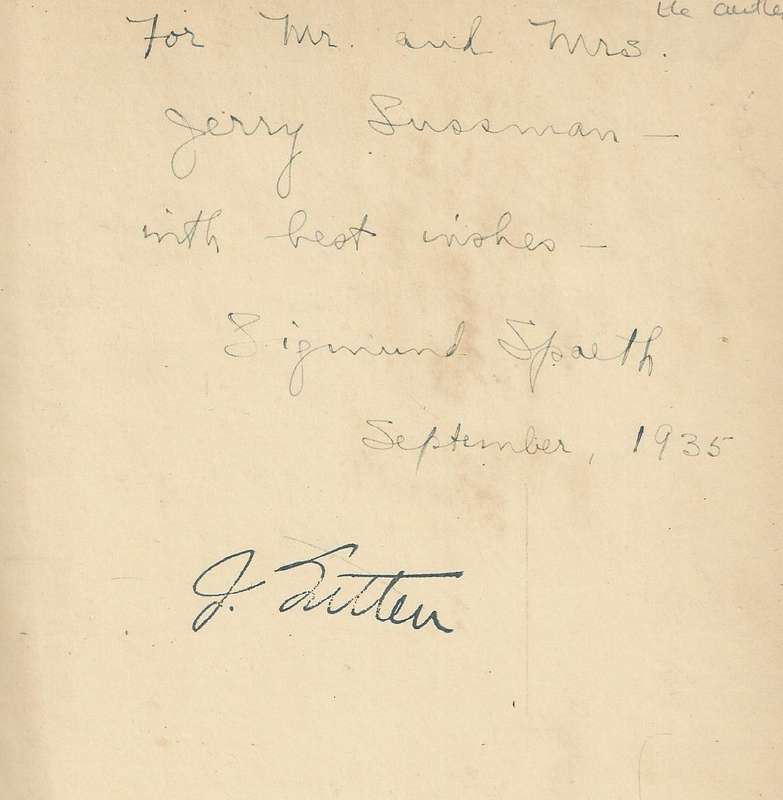 For Mr. and Mrs.
Jerry Sussman –
with best wishes –
Sigmund Spaeth
September, 1935
J.